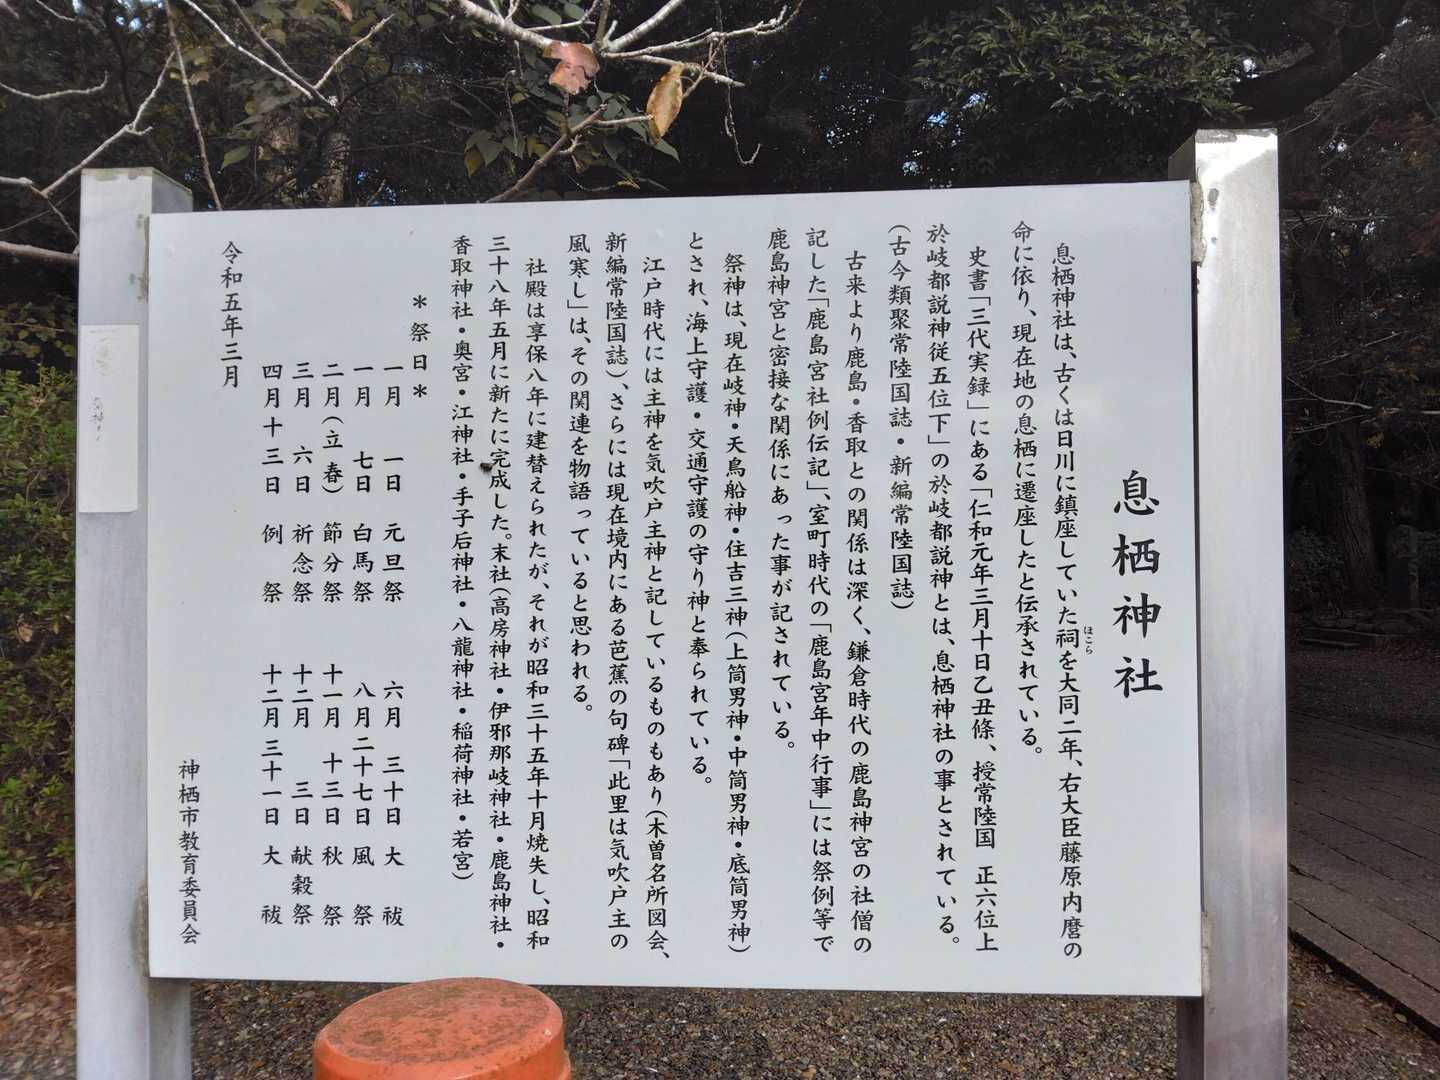 息栖神社
息栖神社は、古くは日川に鎮座していた祠を大同二年、右大臣藤原内麿の
ほこら
命に依り、現在地の息栖に遷座したと伝承されている。
史書「三代実録」にある「仁和元年三月十日乙丑條、授常陸国 正六位上
於岐都説神従五位下」の於岐都説神とは、息栖神社の事とされている。
(古今類聚常陸国誌・新編常陸国誌)
古来より鹿島・香取との関係は深く、鎌倉時代の鹿島神宮の社僧の
記した「鹿島宮社例伝記」、室町時代の「鹿島宮年中行事」には祭例等で
鹿島神宮と密接な関係にあった事が記されている。
祭神は、現在岐神・天鳥船神・住吉三神(上筒男神・中筒男神・底筒男神)
とされ、海上守護・交通守護の守り神と奉られている。
江戸時代には主神を気吹戸主神と記しているものもあり(木曽名所図会、
新編常陸国誌)、さらには現在境内にある芭蕉の句碑「此里は気吹戸主の
風寒し」は、その関連を物語っていると思われる。
社殿は享保八年に建替えられたが、それが昭和三十五年十月焼失し、昭和
三十八年五月に新たに完成した。末社(高房神社・伊邪那岐神社・鹿島神社・
香取神社・奥宮・江神社・手子后神社・八龍神社・稲荷神社・若宮)
*祭日*
一月 一日 元旦祭 六月 三十日 大祓
一月 七日 白馬祭 八月二十七日 風祭
二月(立春) 節分祭 十一月 十三日 秋祭
三月 六日 祈念祭 十二月 三日 献穀祭
四月十三日 例祭 十二月三十一日 大祓
令和五年三月
神栖市教育委員会